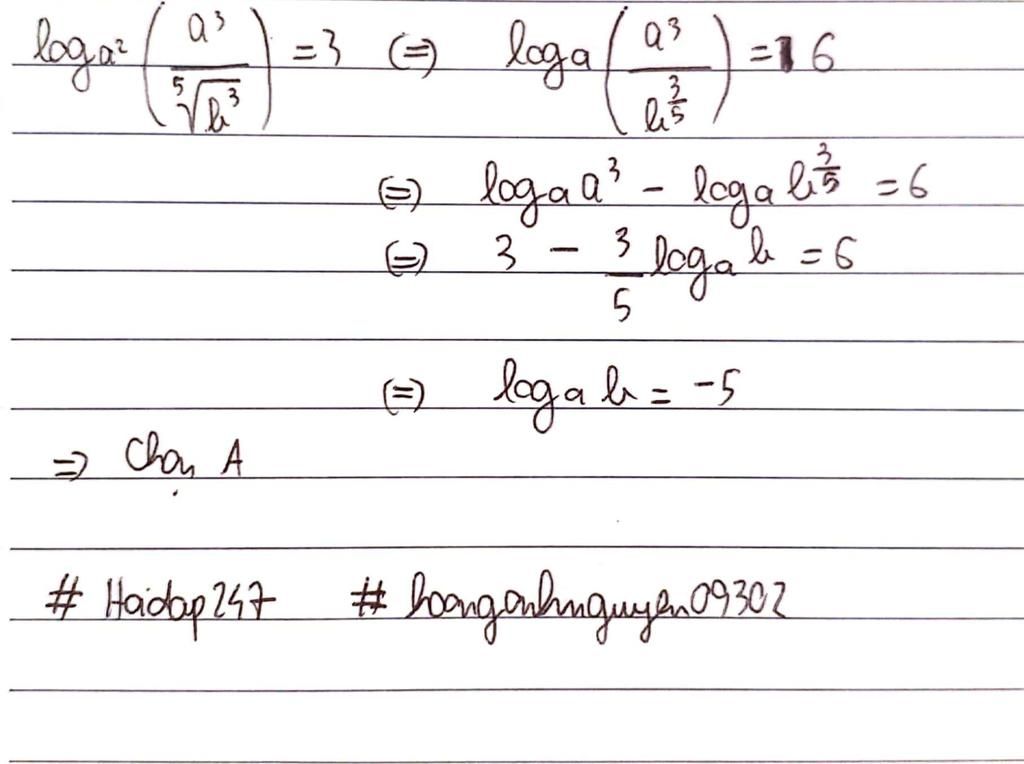 log_{a²} (a³ / ⁵√b³) = 3 (=) log_a (a³ / b^{3/5}) = 6
(=) log_a a³ - log_a b^{3/5} = 6
(=) 3 - 3/5 log_a b = 6
(=) log_a b = -5
=> Chọn A
# Hoidap247 # hoanganhnguyen09302